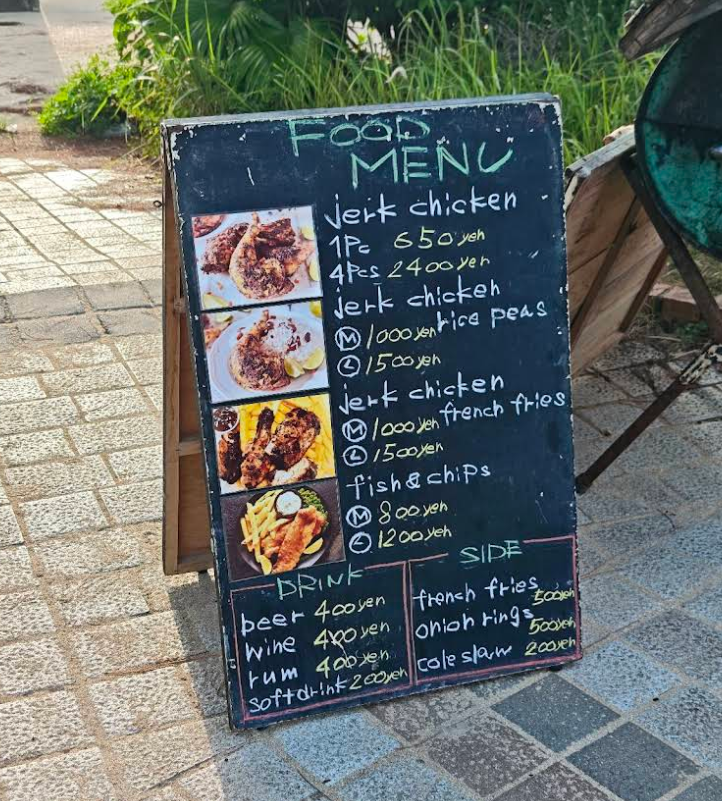 FOOD
MENU
jerk chicken
1Pc 650yen
4Pcs 2400yen
jerk chicken
rice peas
M 1000yen
L 1500yen
jerk chicken
french fries
M 1000yen
L 1500yen
fish&chips
M 800yen
L 1200yen
DRINK
beer 400yen
wine 400yen
rum 400yen
softdrink 200yen
SIDE
french fries 500yen
onion rings 500yen
cole slaw 200yen